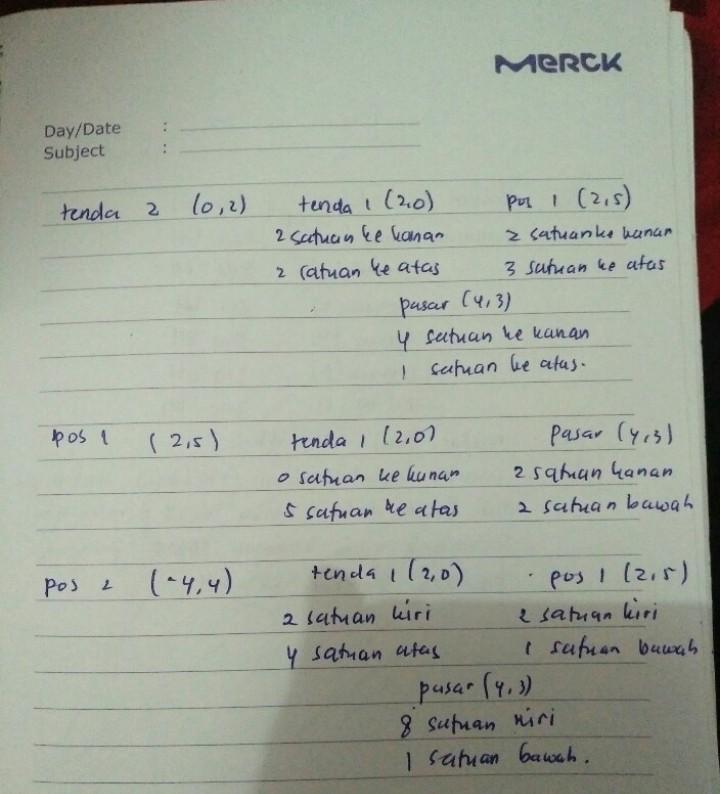 MERCK
Day/Date :
Subject :
tenda 2 (0,2) tenda 1 (2,0) pos 1 (2,5)
2 satuan ke kanan 2 satuan ke kanan
2 satuan ke atas 3 satuan ke atas
pasar (4,3)
4 satuan ke kanan
1 satuan ke atas.
pos 1 (2,5) tenda 1 (2,0) pasar (4,3)
0 satuan ke kanan 2 satuan kanan
5 satuan ke atas 2 satuan bawah
pos 2 (-4,4) tenda 1 (2,0) pos 1 (2,5)
2 satuan kiri 2 satuan kiri
4 satuan atas 1 satuan bawah
pasar (4,3)
8 satuan kiri
1 satuan bawah.